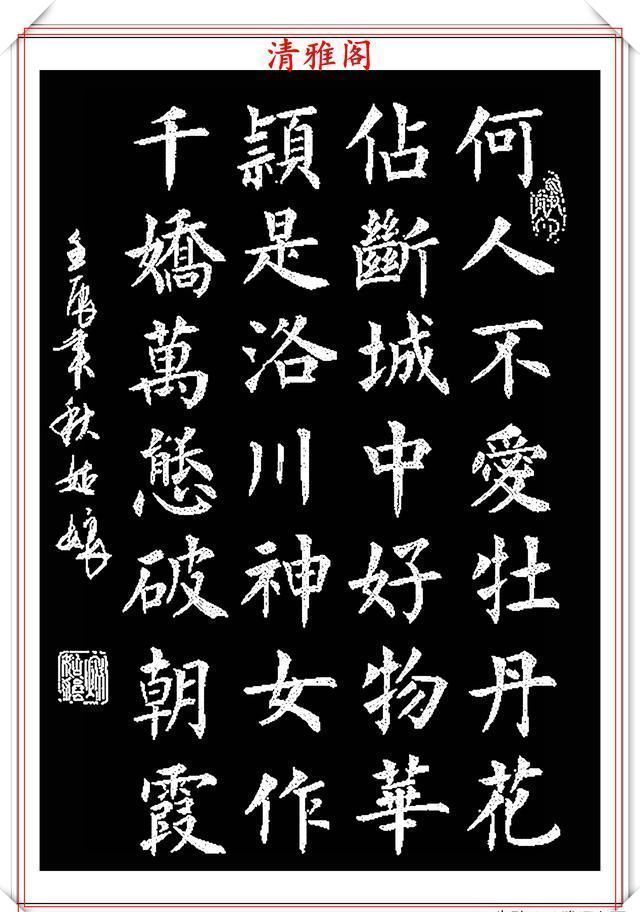 清雅阁
何人不愛牡丹花
佔斷城中好物華
頴是洛川神女作
千嬌萬態破朝霞
壬辰年秋姑娘